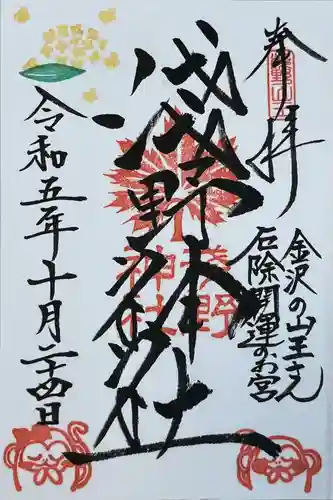 奉拝
金沢の山王さん
厄除開運のお宮
淺野本社
淺野
神社
令和五年十月二十四日